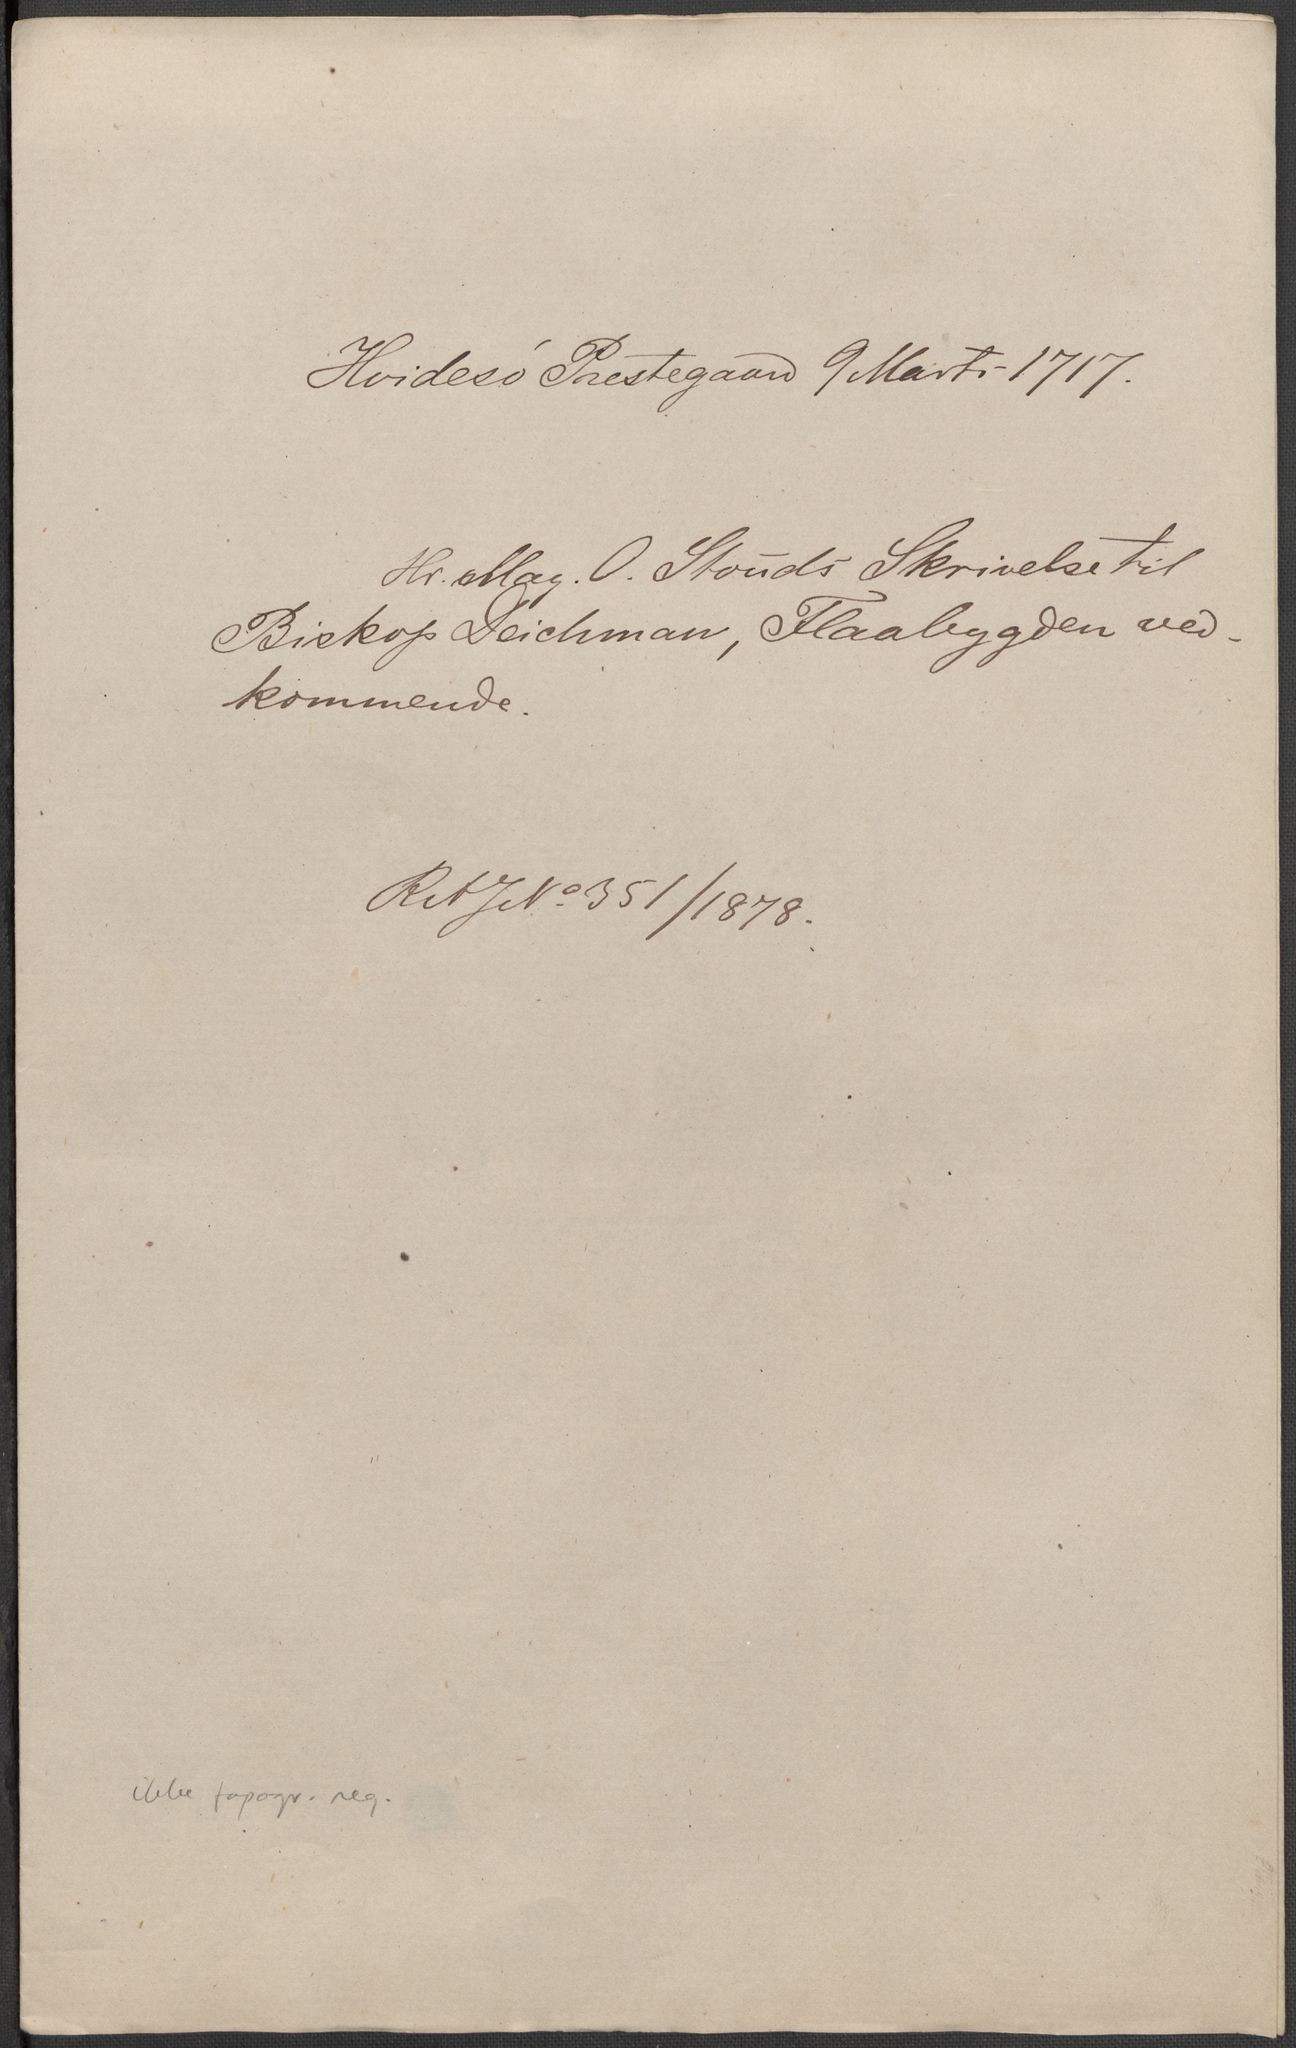 Hvidesö Præstegaard 9 Marts 1717.
Hr. Mag. O. Stouds Skrivelse til
Biskop Deichman, Flaabygden ved-
kommende.
RA J No. 351/1878.
ikke topogr. reg.